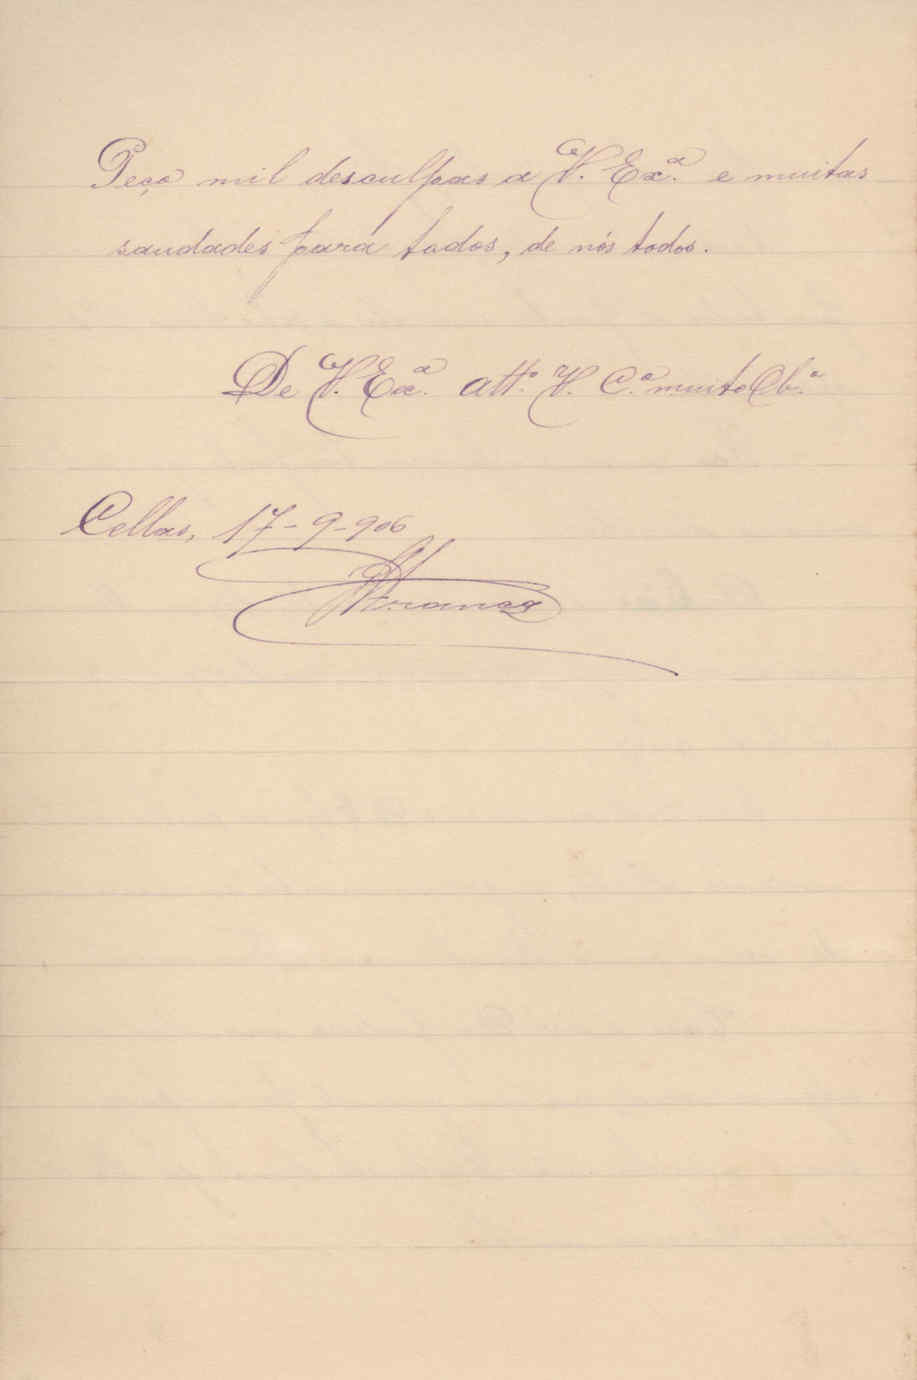 Peço mil desculpas a V. Exª. e muitas
saudades para todos, de nós todos.
De V. Exª. attº. V. C.º muito Obº.
Cellas, 17-9-906